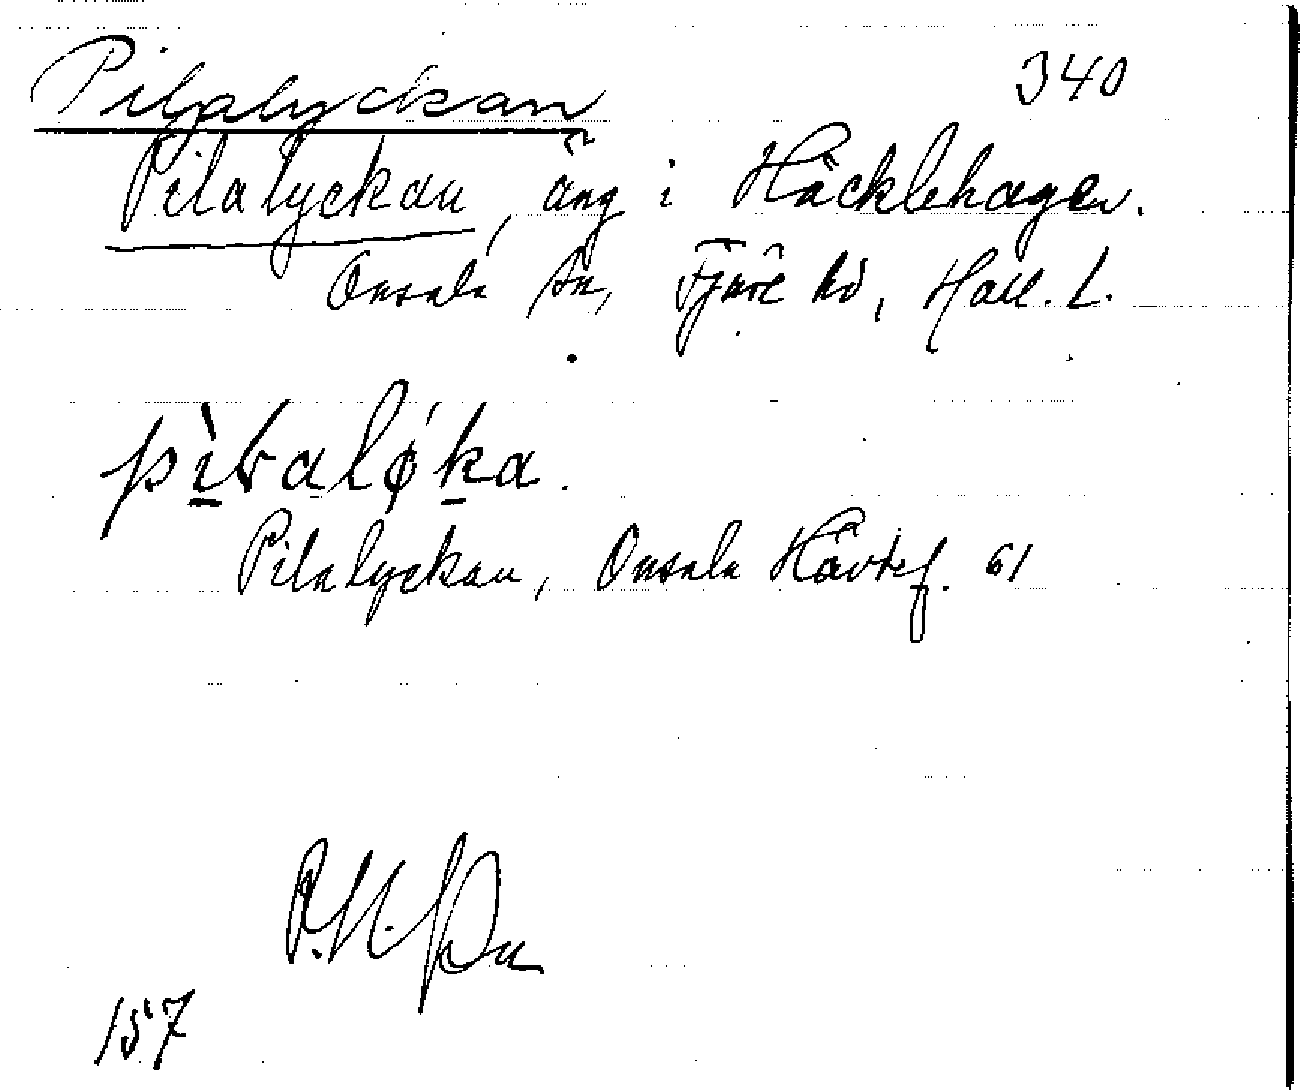 Pilalyckan 340
Pilalyckan, äng i Häcklehagen.
Onsala sn, Fjäre hd, Hall. L.
Pilalyckan, Onsala Hävdef. 61
157